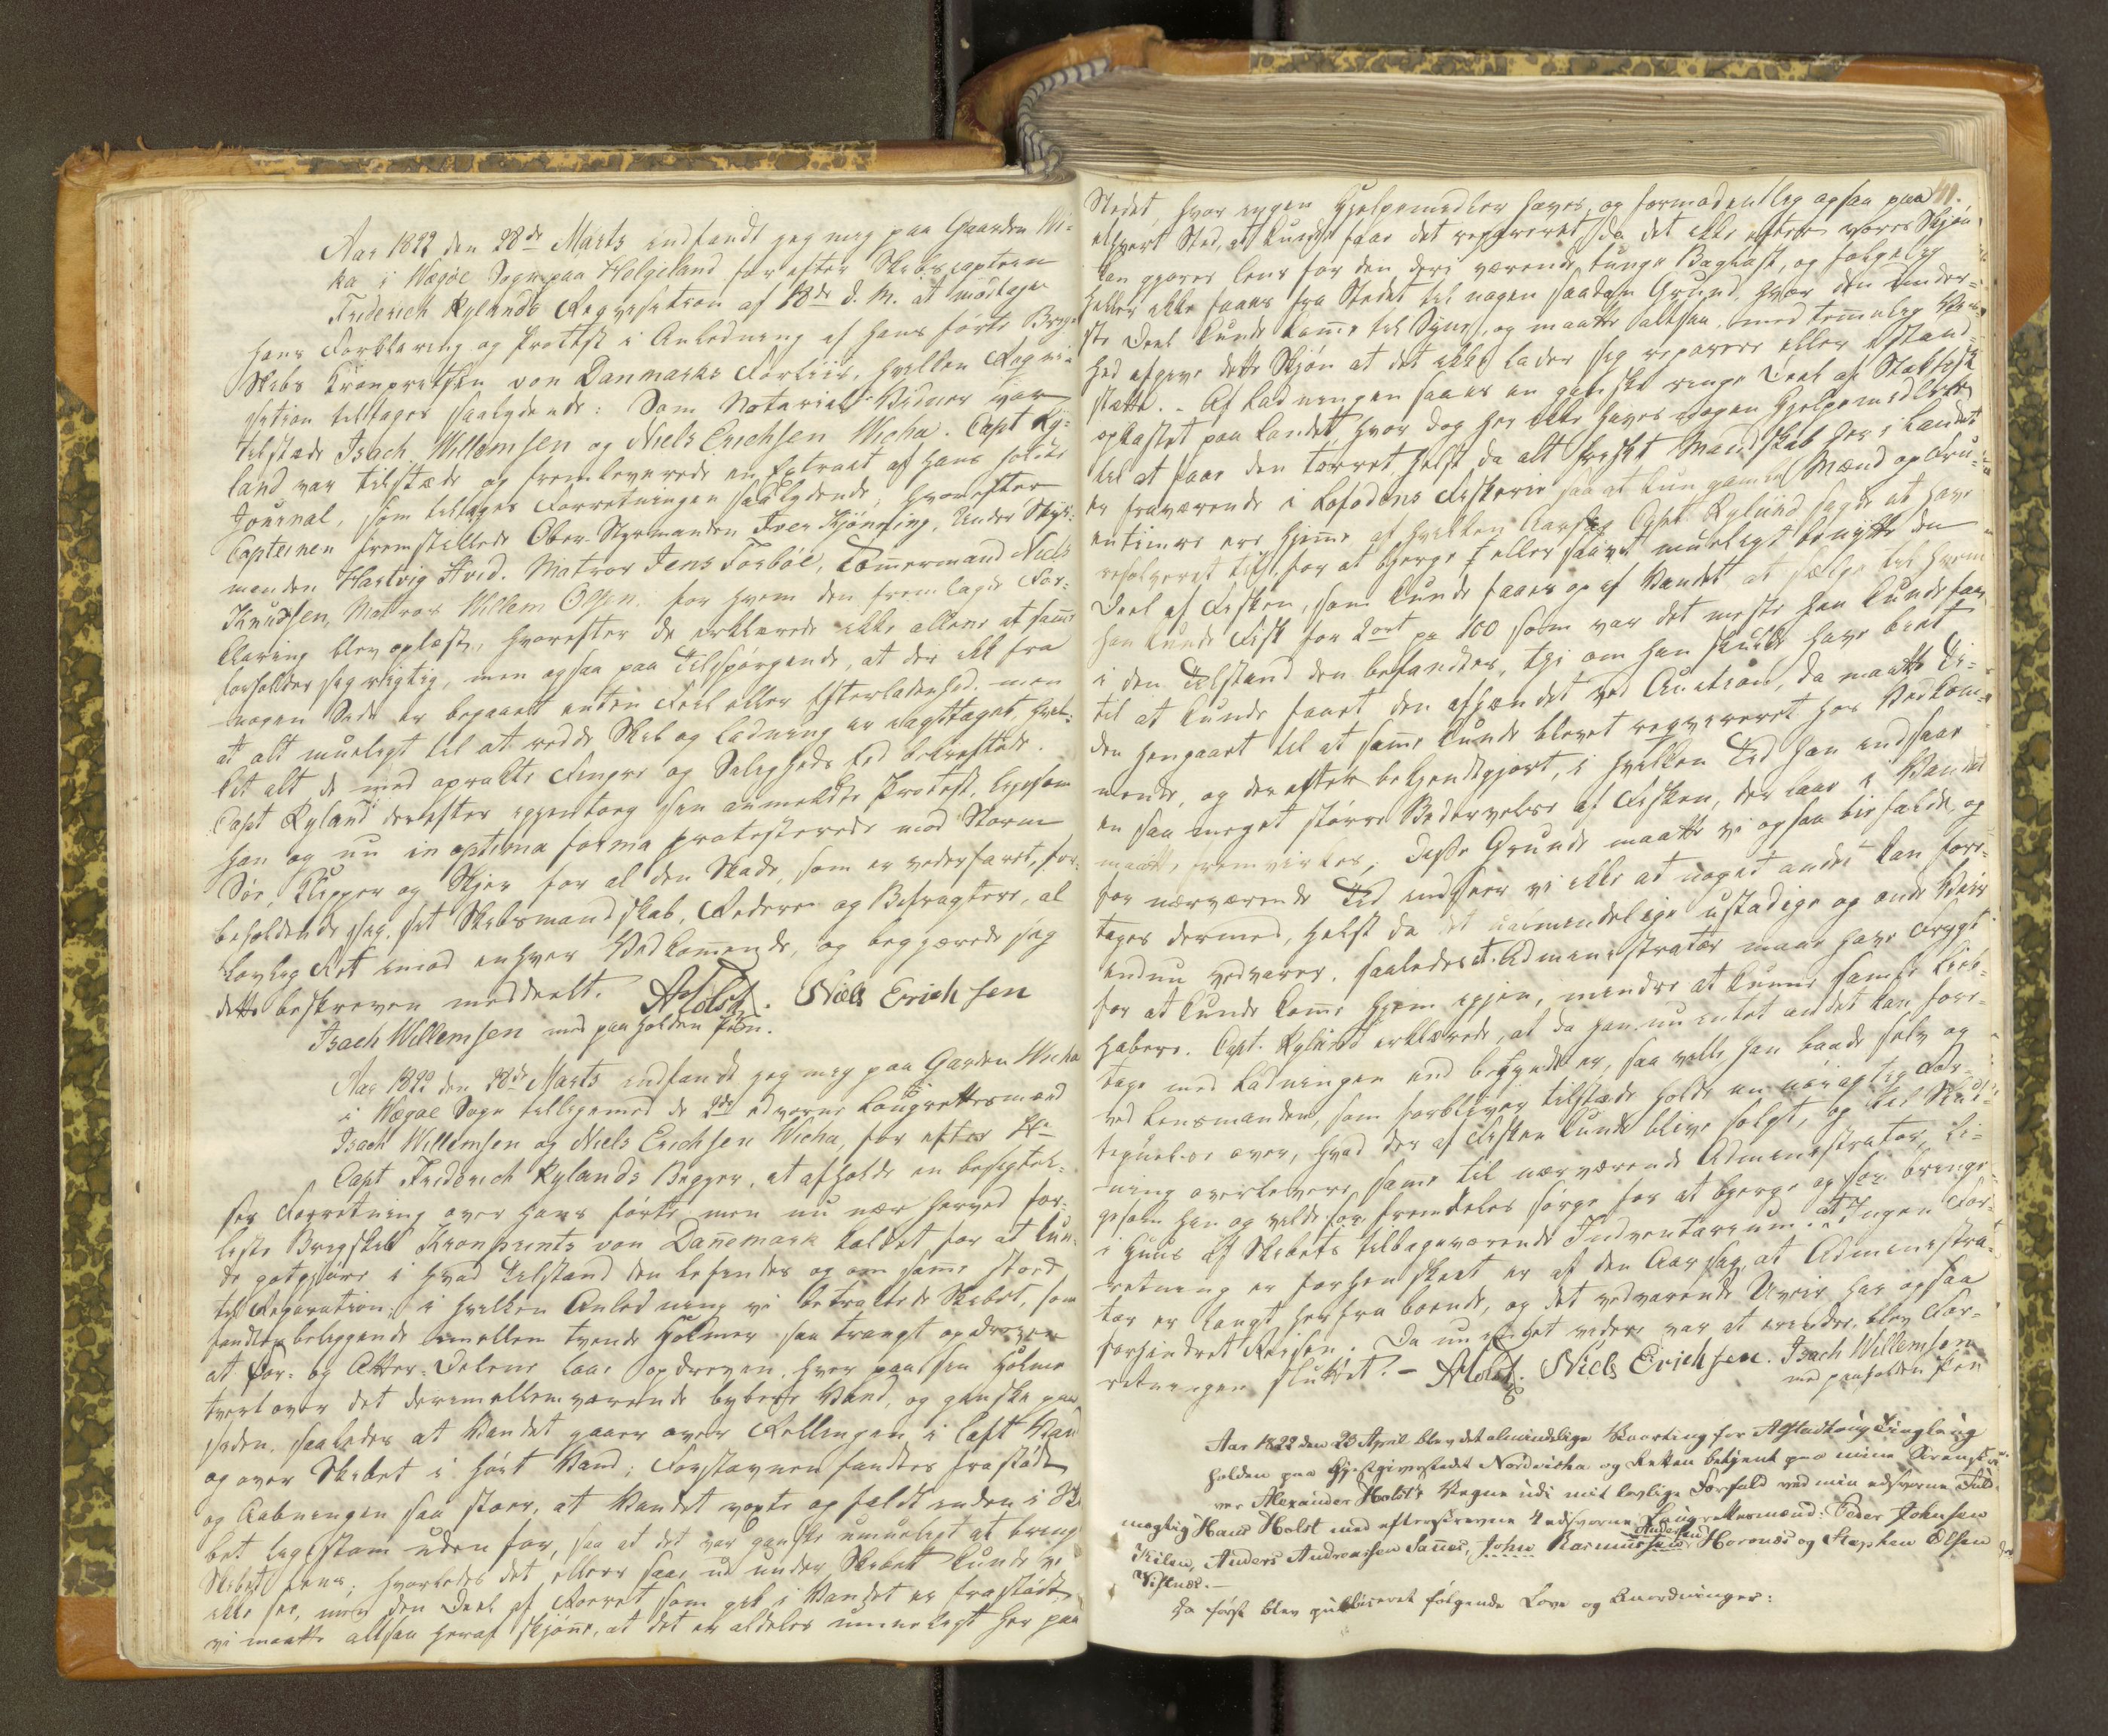 Aar 1822 den 28de Marts indfandt jeg mig paa Gaarden Wi-
ka i Wægöe Sogn paa Helgeland for efter Skibscaptein
Friderich Rylands Reqvisition af 18de d. M. at modtage
hans Forklaring og Protest i Anledning af hans förte Brig-
Skibs Kronprintsen von Danmarks Forliis, hvilken Reqvi-
sition tilföges saalydende: Som Notarial Vidner var
tilstæde Isach Willemsen og Niels Erichsen Wicha. Capt Ry-
land var tilstæde og fremleverede en Extract af hans holdte
Journal, som tilföges Forretningen saalydende, hvorefter
Capteinen fremstillede Ober-Styrmanden Iver Kjönning, Under Styr-
manden Hartvig Hvid. Matros Jens Torböe, Tömmermand Niels
Knudsen, Matros Willem Olsen. for hvem den fremlagde For-
klaring blev oplæst, hvorefter de erklærede ikke allene at samme
forholder sig rigtig, men ogsaa paa Tilspörgende, at der ikke fra
nogen Side er begaaet enten Feil eller Efterladenhed. men
at alt mueligt til at redde Skib og Ladning er iagttaget, hvil-
ket alt de med oprakte Fingre og Saligheds Eed bekræftede.
Capt Ryland derefter igjentog sin anmeldte Protest, ligesom
han og nu in optima forma protesterede mod Storm
Söe, Klipper og Skjær for al den Skade, som er vederfaret, for-
beholdende sig, sit Skibsmandskab, Redere og Befragtere, al
lovlig Ret imod enhver Vedkommende, og begjærede sig
dette beskreven meddeelt. AHolst. Niels Erichsen
Isach Willemsen med paaholden Pen.
Aar 1822 den 28de Marts indfandt jeg mig paa Gaarden Wicha
i Wægöe Sogn tilligemed de 2de edsvorne Laugrettesmænd
Isach Willemsen og Niels Erichsen Wicha, for efter Hr
Capt Friderich Rylands Begjær, at afholde en besigtel-
ses Forretning over hans förte men nu nær herved for-
liste Brigskib Kronprints von Dannemark kaldet for at kun-
de godtgjöre i hvad Tilstand den befindes og om samme stod
til Reparation; i hvilken Anledning vi betraktede Skibet, som
fandtes beliggende imellem tvende Holmer saa trangt opdreven
at For- og Agter-Delene laae opdreven hver paa sin Holme
tvert over det derimellem værende Vand, og ganske paa
siden, saaledes at Vandet gaaer over Rællingen i Laft Vand
og over Skibet i höit Vand; Forstavnen fandtes frastödt
og Aabningen saa stoer, at Vandet voxte og faldt inden i Ski-
bet ligesom uden for, saa at det var ganske umueligt at bringe
Skibet lens; hvorledes det ellers saae ud under Skibet kunde vi
ikke see, men den Deel af Roeret som gik i Vandet er frastödt.
vi maatte altsaa heraf skjönne, at det er aldeles umueligt her paa
41.
Stedet, hvor ingen Hjelpemidler haves, og formodentlig ogsaa paa
ethvert Sted, at kunde faae det repareret, da det ikke efter vores Skjön
kan gjöres lens for den deri værende tunge Baglast, og fölgelig
heller ikke faaes fra Stedet til nogen saadan Grund, hvor den under-
ste Deel kunde komme til Syne, og maatte altsaa med temmelig Vis-
hed afgive dette Skjön at det ikke lader sig reparere eller istand-
sætte. - Af Ladningen saaes en ganske ringe Deel af Stokfisk
opkastet paa Landet, hvor dog her ikke haves nogen Hjelpemidler
til at faae den törret, helst da alt friskt Mandskab her i Landet
er fraværende i Lofodens Fiskerie saa at kun gamle Mænd og Fru-
entimre ere hjemme, af hvilken Aarsag Capt Ryland sagde at have
resolveret til, for at bjerge eller saavit mueligt benytte den
Deel af Fisken, som kunde faaes op af Vandet at sælge til hvem
han kunde Fisk for 2 ort pr 100 som var det meste han kunde faae
i den Tilstand den befandtes, thi om han skulde have biet
til at kunde faaet den afhændet ved Auction, da maatte Ti-
den hengaaet til at samme kunde blevet reqvireret hos Vedkom-
mende, og derefter bekjendtgjort, i hvilken Tid han indsaae
en saa meget större Bedervelse af Fisken, der laae i Vandet
maatte fremvirkes; Disse Grunde maatte vi ogsaa bifalde, og
for nærværende Tid indseer vi ikke at noget andet kan fore-
tages dermed, helst da det ualmindelige ustadige og onde Veir
endnu vedvarer, saaledes at Administrator maae have Frygt
for at kunde komme hjem igjen, mindre at kunne samle Lieb-
habere. Capt. Ryland erklærede, at da han nu intet andet kan fore-
tage med Ladningen end begyndt er, saa vilde han baade selv og
ved Lensmanden, som forbliver tilstæde holde en nöiagtig For-
tegnelse over, hvad der af Fisken kunde blive solgt, og til Slut-
ning overlevere samme til nærværende Administrator, li-
gesom han og vilde fremdeles sörge for at bjerge og bringe
i Huus af Skibets tilbageværende Inventarium. at ingen For-
retning er forhen skeet er af den Aarsag, at Administra-
tor er langt herfra boende, og det vedvarende Uveir har ogsaa
forhindret Reisen. Da nu intet videre var at erindre, blev For-
retningen sluttet. - AHolst. Niels Erichsen. Isach Willemsen
med paaholden Pen
Aar 1822 den 23 April blev det almindelige Vaarting for Alstadhoug Tinglaug
holden paa Gjestgiverstedet Nordvicka og Retten betjent paa mine Sorenskri-
ver Alexander Holst's Vegne udi mit lovlige Forfald ved min edsvorne Fuld-
mægtig Hans Holst med efterskrevne 4 edsvorne Laugrettesmænd: Peder Johnsen
Kilen, Anders Andreassen Sannes, John Rasmussen Andersen Hornæs og Stephen Olsen
Vistnæs. -
Da först blev publiceret fölgende Love og Anordninger: